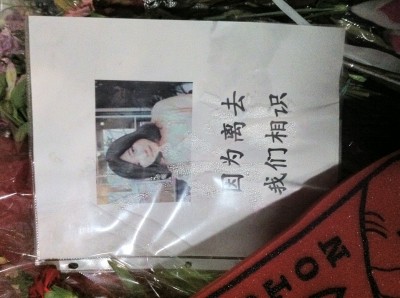 因为离去
我们相识
TON